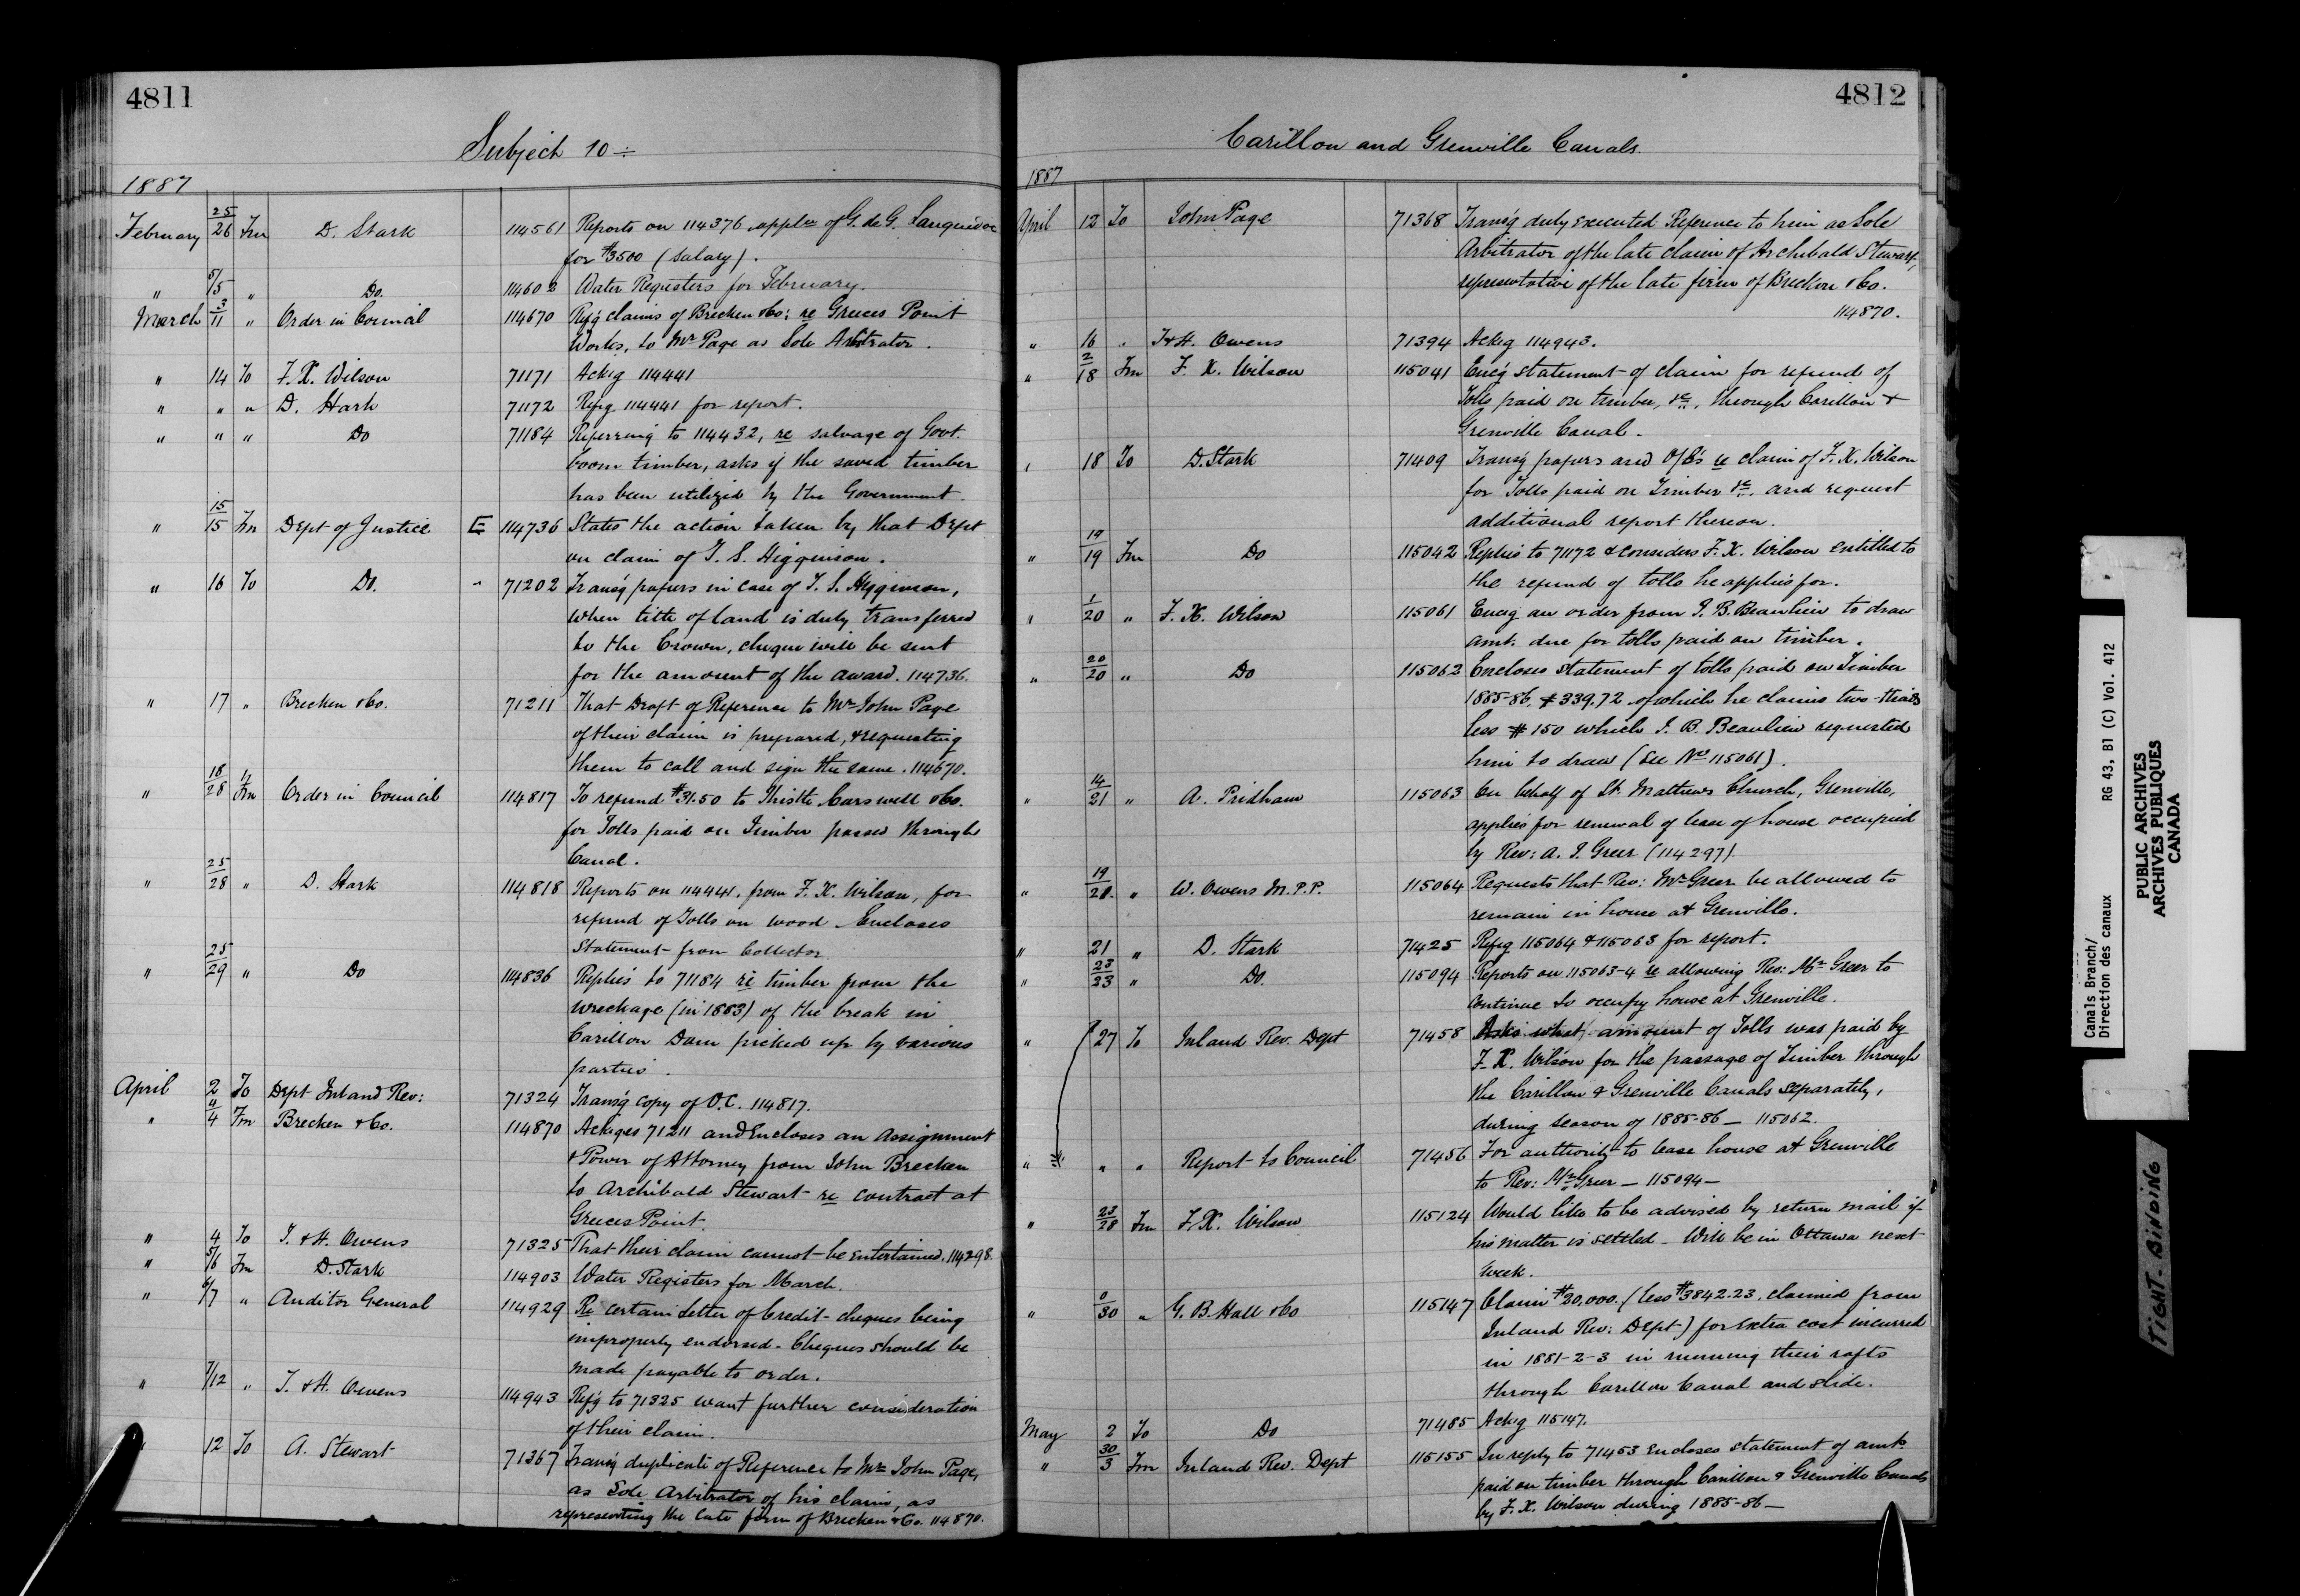 4811
Subject 10 ÷
1887
February 25/26 Fm D. Stark 114561 Reports on 114376 appln of G. de G.
for $3500 (Salary).
" 5/5 " Do. 114602 Water Registers for February.
March 3/11 " Order in Council 114670 Refg claims of Brecken & Co: re Greeces Point
Works, to Mr Page as Sole Arbitrator.
" 14 To F. X. Wilson 71171 Ackg 114441
" " " D. Stark 71172 Refg 114441 for report.
" " " Do 71184 Referring to 114432, re salvage of Govt.
boom timber, asks if the saved timber
has been utilized by the Government.
" 15/15 Fm Dept of Justice E 114736 States the action taken by that Dept
on claim of T. S. Higginson.
" 16 To Do. " 71202 Transg papers in case of T. S. Higginson,
when title of land is duly transferred
to the Crown, cheque will be sent
for the amount of the award. 114736.
" 17 " Brecken & Co. 71211 That Draft of Reference to Mr John Page
of their claim is prepared, & requesting
them to call and sign the same. 114670.
" 18/28 Fm Order in Council 114817 To refund $31.50 to Thistle Carswell & Co.
for Tolls paid on Timber passed through
Canal.
" 25/28 " D. Stark 114818 Reports on 114441, from F. X. Wilson, for
refund of Tolls on wood Encloses
Statement from Collector.
" 25/29 " Do 114836 Replies to 71184 re timber from the
wreckage (in 1883) of the break in
Carillon Dam picked up by various
parties.
April 2 To Dept Inland Rev: 71324 Transg copy of O.C. 114817.
" 4/4 Fm Brecken & Co. 114870 Ackges 71211 and Encloses an Assignment
& Power of Attorney from John Brecken
to Archibald Stewart re contract at
Greeces Point.
" 4 To T. & H. Owens 71325 That their claim cannot be Entertained. 114298.
" 5/6 Fm D. Stark 114903 Water Registers for March.
" 6/7 " Auditor General 114929 Re certain Letter of Credit cheques being
improperly endorsed. Cheques should be
made payable to order.
" 7/12 " T. & H. Owens 114943 Refg to 71325 want further consideration
of their claim.
" 12 To A. Stewart 71367 Transg duplicate of Reference to Mr John Page,
as Sole Arbitrator of his claim, as
representing the late firm of Brecken & Co. 114870.
4812
Carillon and Grenville Canals.
1887
April 12 To John Page 71368 Transg duly executed Reference to him as Sole
Arbitrator of the late claim of Archibald Stewart,
representative of the late firm of Brecken & Co.
114870.
" 16 " T & H. Owens 71394 Ackg 114943.
" 2/18 Fm F. X. Wilson 115041 Encg statement of claim for refund of
Tolls paid on timber, &c., through Carillon &
Grenville Canal.
" 18 To D. Stark 71409 Transg papers and O/C's re claim of F. X. Wilson
for Tolls paid on Timber &c. and request
additional report thereon.
" 19/19 Fm Do 115042 Replies to 71172 & considers F. X. Wilson entitled to
the refund of tolls he applies for.
" 1/20 " F. X. Wilson 115061 Encg an order from J. B. Beaulieu to draw
amt. due for tolls paid on timber.
" 20/20 " Do 115062 Encloses statement of tolls paid on Timber
1885-86, $339.72 of which he claims two-thirds
less $150 which J. B. Beaulieu requested
him to draw (see No 115061).
" 14/21 " A. Pridham 115063 On behalf of St. Matthews Church, Grenville,
applies for renewal of lease of house occupied
by Rev: A. J. Greer (114297).
" 19/21 " W. Owens M.P.P. 115064 Requests that Rev: Mr Greer be allowed to
remain in house at Grenville.
" 21 " D. Stark 71425 Refg 115064 & 115063 for report.
" 23/23 " Do. 115094 Reports on 115063-4 re allowing Rev: Mr Greer to
continue to occupy house at Grenville.
" 27 To Inland Rev. Dept 71458 Asks what amount of Tolls was paid by
F. X. Wilson for the passage of Timber through
the Carillon & Grenville Canals separately,
during season of 1885-86 — 115062.
" " " Report to Council 71456 For authority to lease house at Grenville
to Rev: Mr Greer — 115094 —
" 23/28 Fm F. X. Wilson 115124 Would like to be advised by return mail if
his matter is settled. Will be in Ottawa next
week.
" 0/30 " G. B. Hall & Co 115147 Claim $20,000. (less $3842.23, claimed from
Inland Rev: Dept) for extra cost incurred
in 1881-2-3 in running their rafts
through Carillon Canal and slide.
May 2 To Do 71485 Ackg 115147.
" 30/3 Fm Inland Rev. Dept 115155 In reply to 71453 Encloses statement of amts
paid on timber through Carillon & Grenville Canals
by F. X. Wilson during 1885-86 —
Canals Branch/
Direction des canaux RG 43, B1 (C) Vol. 412
PUBLIC ARCHIVES
ARCHIVES PUBLIQUES
CANADA
TIGHT-BINDING